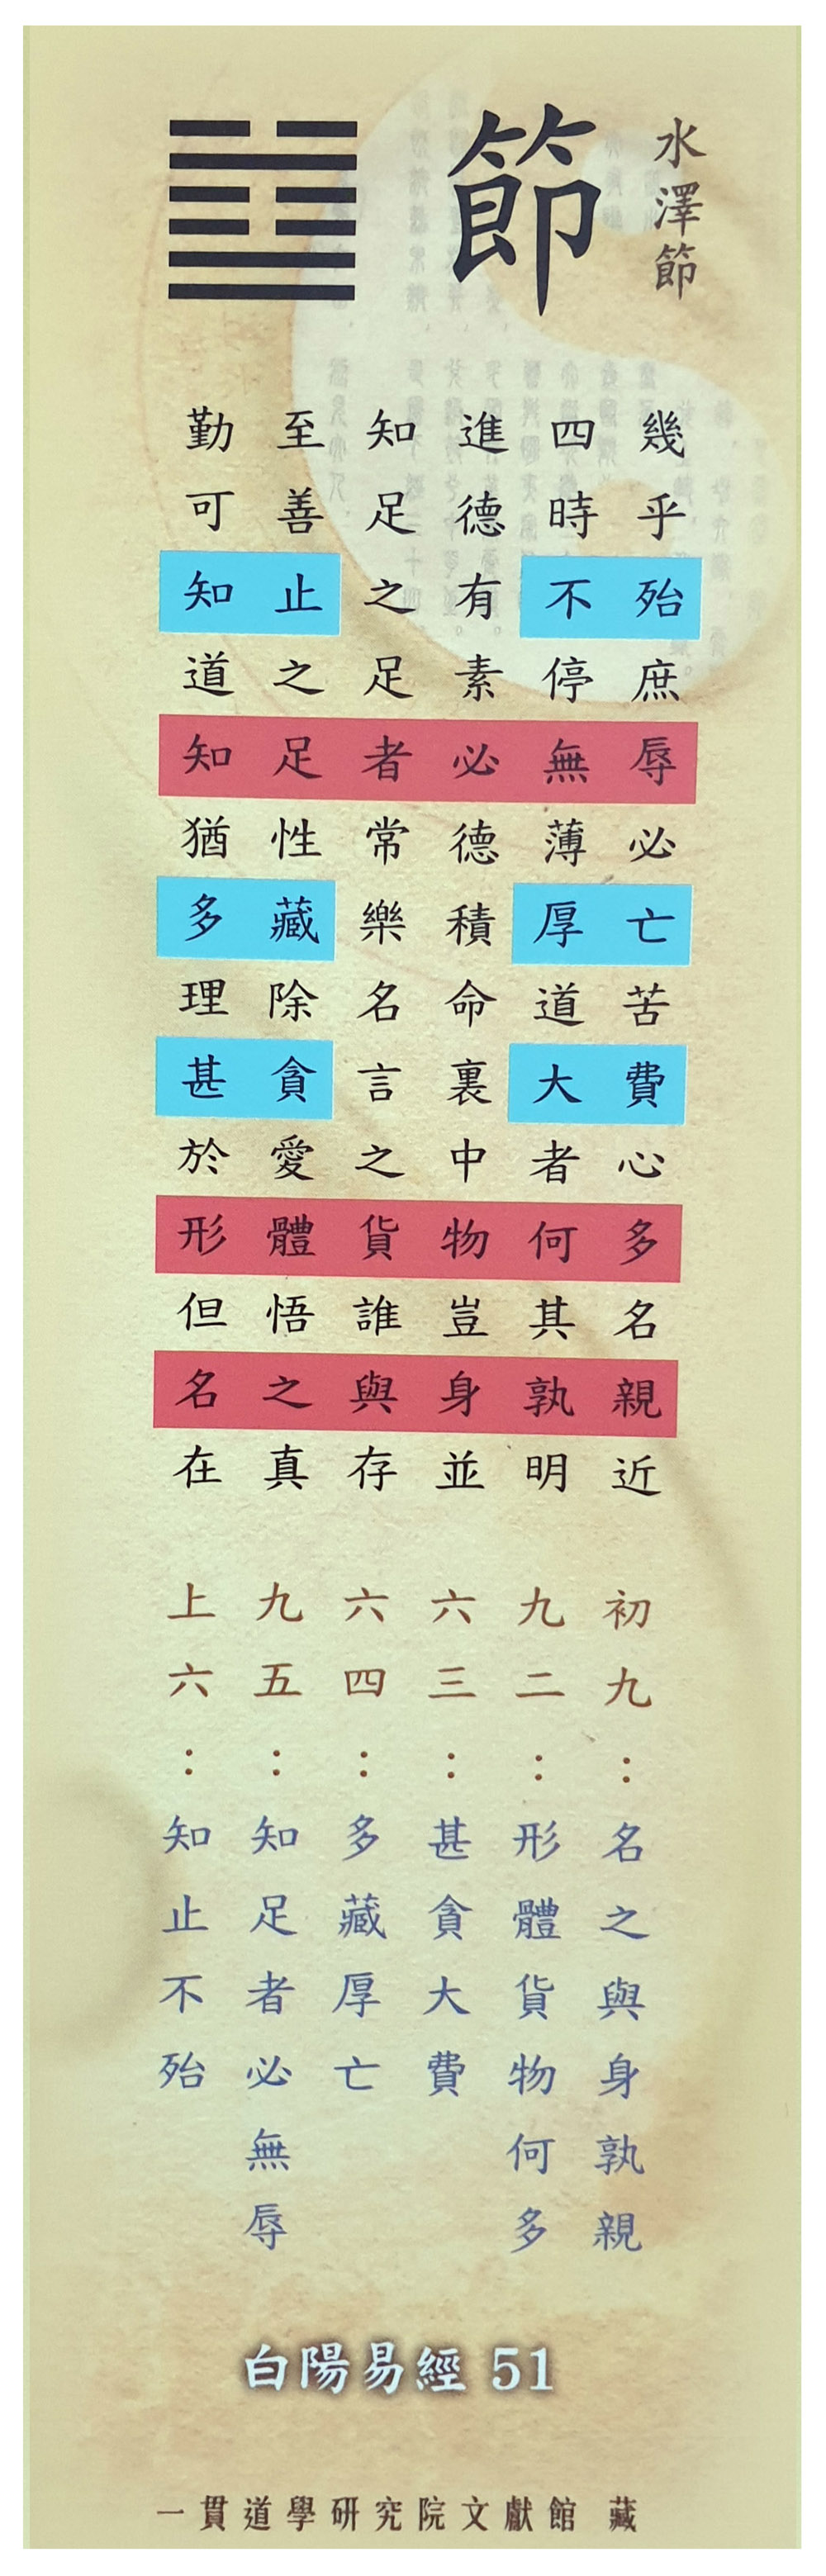 水澤節
節
幾乎殆庶辱必亡苦費心多名親近
四時不停無薄厚道大者何其孰明
進德有素必德積命裏中物豈身並
知足之足者常樂名言之貨誰與存
至善止之足性藏除貪愛體悟之真
勤可知道知猶多理甚於形但名在
初九：名之與身孰親
九二：形體貨物何多
六三：甚貪大費
六四：多藏厚亡
九五：知足者必無辱
上六：知止不殆
白陽易經 51
一貫道學研究院文獻館 藏